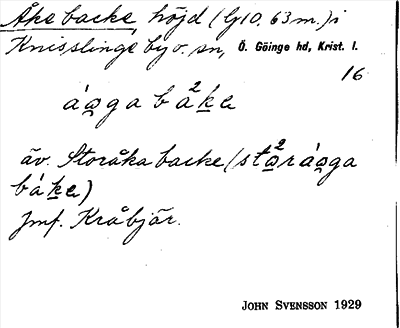 Åke backe, höjd (G10. 63 m.) i
Knisslinge by o. sn, Ö. Göinge hd, Krist. l.
16
áƍga bǻ²ḵe
äv. Storåka backe (stƍ²ráƍga
báḵe)
Jmf. Kråbjär.
JOHN SVENSSON 1929